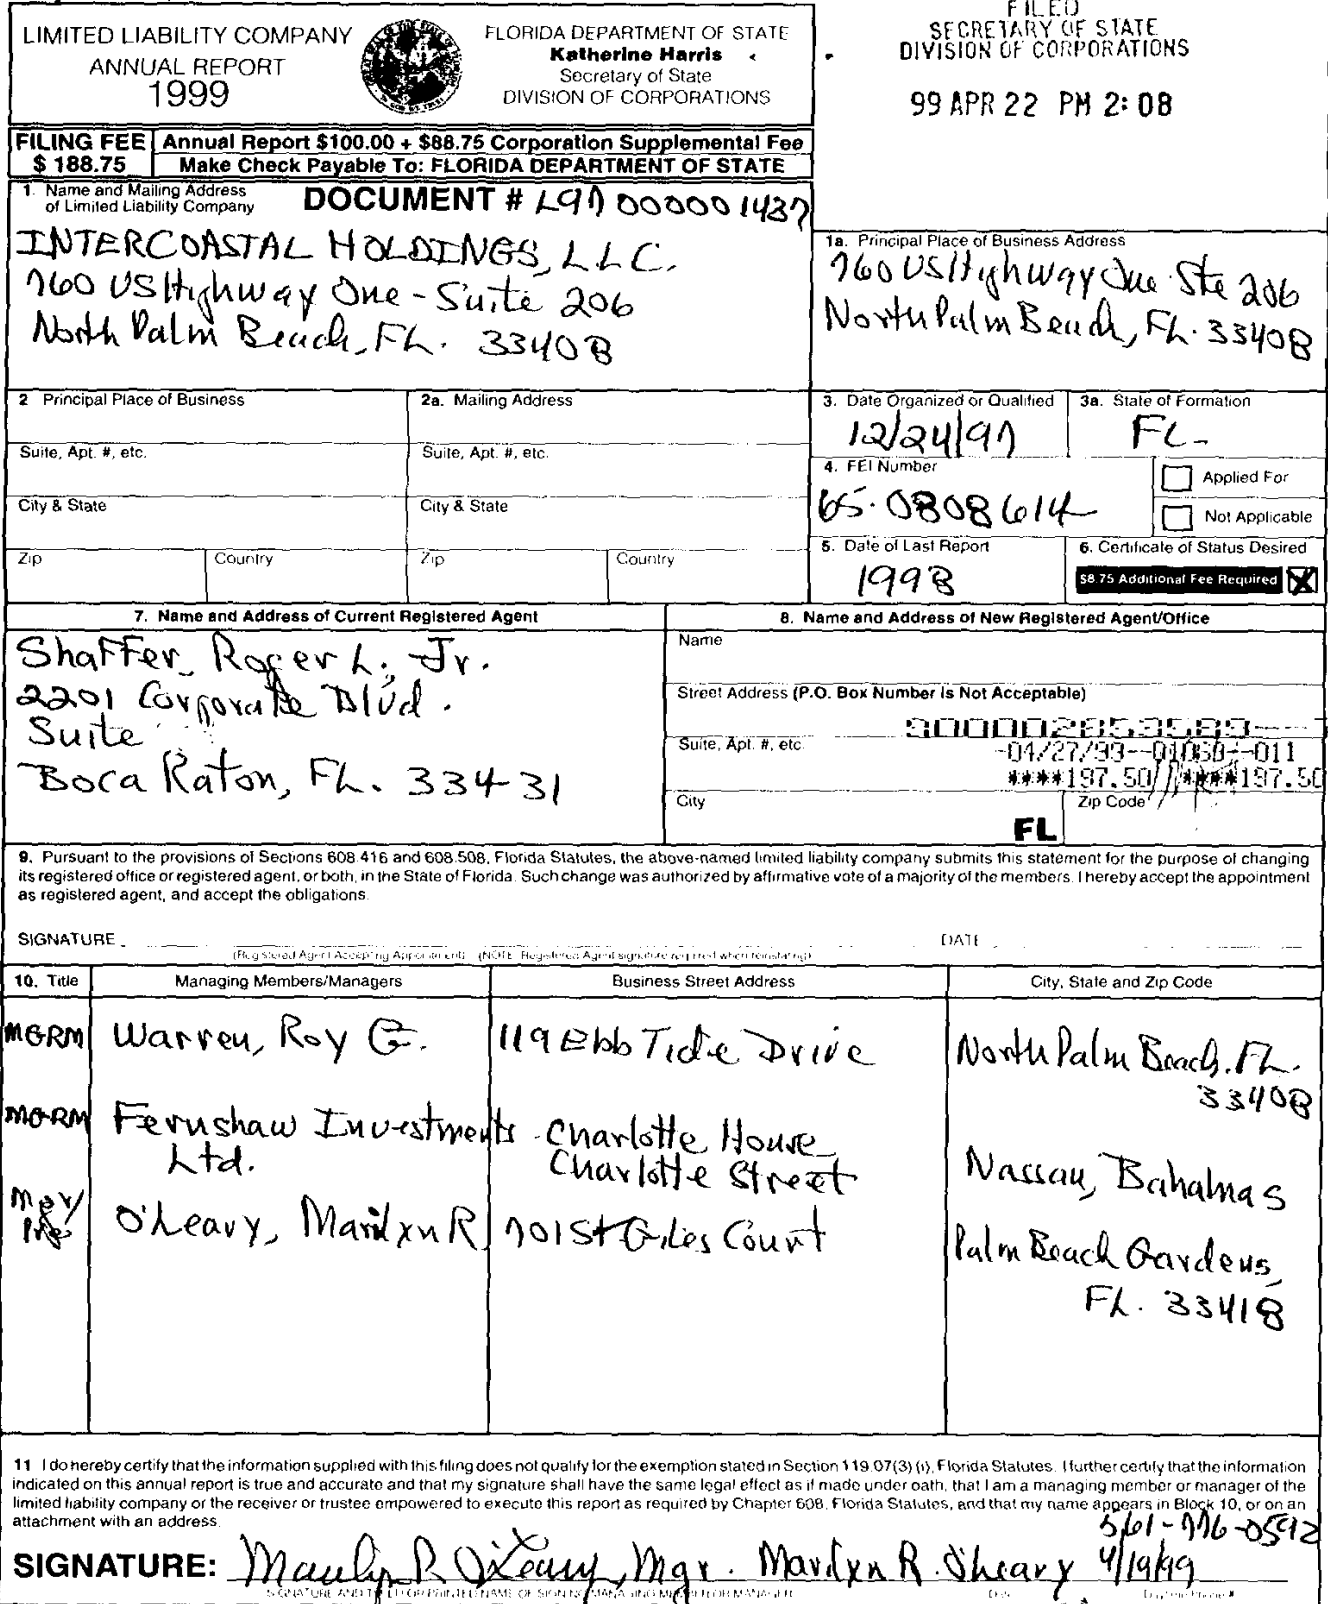 LIMITED LIABILITY COMPANY
ANNUAL REPORT
1999
FLORIDA DEPARTMENT OF STATE
Katherine Harris
Secretary of State
DIVISION OF CORPORATIONS
FILED
SECRETARY OF STATE
DIVISION OF CORPORATIONS
99 APR 22 PM 2:08
FILING FEE
$ 188.75
Annual Report $100.00 + $88.75 Corporation Supplemental Fee
Make Check Payable To: FLORIDA DEPARTMENT OF STATE
1. Name and Mailing Address
of Limited Liability Company
DOCUMENT # L97000001437
INTERCOASTAL HOLDINGS, LLC.
760 US Highway One - Suite 206
North Palm Beach, FL. 33408
1a. Principal Place of Business Address
760 US Highway One Ste 206
North Palm Beach, FL. 33408
2 Principal Place of Business
2a. Mailing Address
Suite, Apt. #, etc.
Suite, Apt. #, etc.
City & State
City & State
Zip
Country
Zip
Country
3. Date Organized or Qualified
12/24/97
3a. State of Formation
FL
4. FEI Number
65-0808614
Applied For
Not Applicable
5. Date of Last Report
1998
6. Certificate of Status Desired
$8.75 Additional Fee Required X
7. Name and Address of Current Registered Agent
Shaffer, Roger L. Jr.
2201 Corporate Blvd.
Suite
Boca Raton, FL. 33431
8. Name and Address of New Registered Agent/Office
Name
Street Address (P.O. Box Number is Not Acceptable)
900002853589--
Suite, Apt. #, etc.
-04/27/99--01060--011
****197.50 ****197.50
City
FL
Zip Code
9. Pursuant to the provisions of Sections 608.416 and 608.508, Florida Statutes, the above-named limited liability company submits this statement for the purpose of changing
its registered office or registered agent, or both, in the State of Florida. Such change was authorized by affirmative vote of a majority of the members. I hereby accept the appointment
as registered agent, and accept the obligations.
SIGNATURE
DATE
(Registered Agent Accepting Appointment) (NOTE: Registered Agent signature required when reinstating)
10. Title
Managing Members/Managers
Business Street Address
City, State and Zip Code
MGRM Warren, Roy G. 119 Ebb Tide Drive North Palm Beach, FL.
33408
MGRM Fernshaw Investments Ltd. Charlotte House
Charlotte Street
Nassau, Bahamas
Mgr/
O'Leary, Marilyn R 701 St Giles Court Palm Beach Gardens,
FL. 33418
11 I do hereby certify that the information supplied with this filing does not qualify for the exemption stated in Section 119.07(3)(i), Florida Statutes. I further certify that the information
indicated on this annual report is true and accurate and that my signature shall have the same legal effect as if made under oath, that I am a managing member or manager of the
limited liability company or the receiver or trustee empowered to execute this report as required by Chapter 608, Florida Statutes, and that my name appears in Block 10, or on an
attachment with an address.
561-776-0592
SIGNATURE: Marilyn R O'Leary, Mgr. Marilyn R. O'Leary 4/19/99
SIGNATURE AND TYPED OR PRINTED NAME OF SIGNING MANAGING MEMBER OR MANAGER
Date
Daytime Phone #